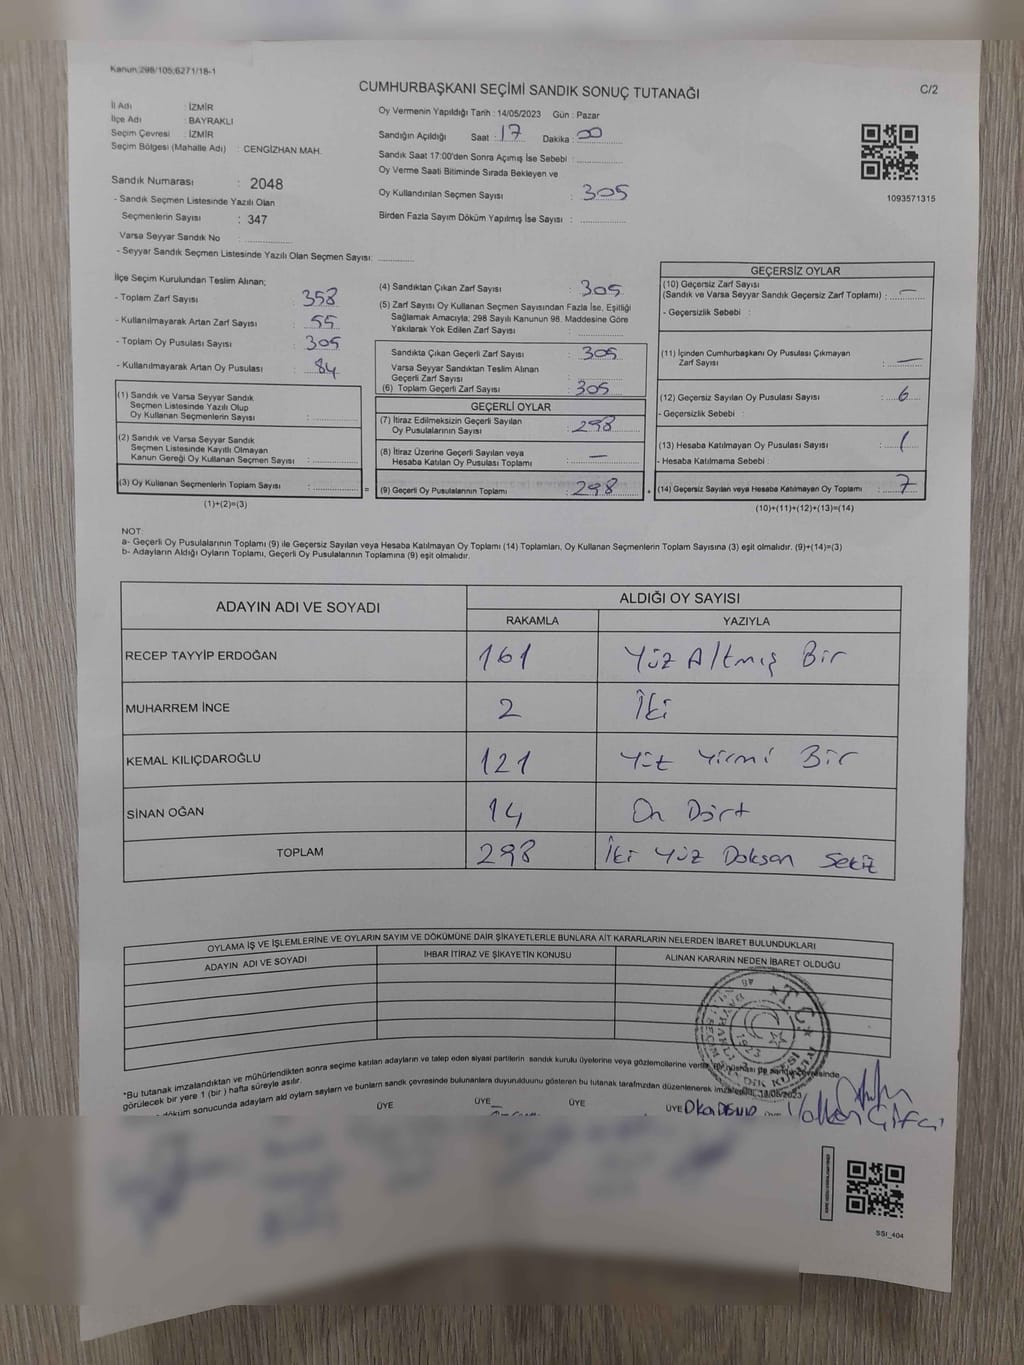 Kanun:298/105;6271/18-1
CUMHURBAŞKANI SEÇİMİ SANDIK SONUÇ TUTANAĞI
C/2
İl Adı : İZMİR
İlçe Adı : BAYRAKLI
Seçim Çevresi : İZMİR
Seçim Bölgesi (Mahalle Adı) : CENGİZHAN MAH.
Sandık Numarası : 2048
- Sandık Seçmen Listesinde Yazılı Olan
Seçmenlerin Sayısı : 347
Varsa Seyyar Sandık No :
- Seyyar Sandık Seçmen Listesinde Yazılı Olan Seçmen Sayısı:
Oy Vermenin Yapıldığı Tarih : 14/05/2023 Gün : Pazar
Sandığın Açıldığı Saat : 17 Dakika : 00
Sandık Saat 17:00'den Sonra Açımış İse Sebebi :
Oy Verme Saati Bitiminde Sırada Bekleyen ve
Oy Kullandırılan Seçmen Sayısı : 305
Birden Fazla Sayım Döküm Yapılmış İse Sayısı :
1093571315
İlçe Seçim Kurulundan Teslim Alınan;
- Toplam Zarf Sayısı : 358
- Kullanılmayarak Artan Zarf Sayısı : 55
- Toplam Oy Pusulası Sayısı : 305
- Kullanılmayarak Artan Oy Pusulası : 84
(1) Sandık ve Varsa Seyyar Sandık
Seçmen Listesinde Yazılı Olup
Oy Kullanan Seçmenlerin Sayısı :
(2) Sandık ve Varsa Seyyar Sandık
Seçmen Listesinde Kayıtlı Olmayan
Kanun Gereği Oy Kullanan Seçmen Sayısı :
(3) Oy Kullanan Seçmenlerin Toplam Sayısı :
(1)+(2)=(3)
(4) Sandıktan Çıkan Zarf Sayısı : 305
(5) Zarf Sayısı Oy Kullanan Seçmen Sayısından Fazla İse, Eşitliği
Sağlamak Amacıyla; 298 Sayılı Kanunun 98. Maddesine Göre
Yakılarak Yok Edilen Zarf Sayısı :
Sandıkta Çıkan Geçerli Zarf Sayısı : 305
Varsa Seyyar Sandıktan Teslim Alınan
Geçerli Zarf Sayısı :
(6) Toplam Geçerli Zarf Sayısı : 305
GEÇERLİ OYLAR
(7) İtiraz Edilmeksizin Geçerli Sayılan
Oy Pusulalarının Sayısı : 298
(8) İtiraz Üzerine Geçerli Sayılan veya
Hesaba Katılan Oy Pusulası Toplamı : —
=
(9) Geçerli Oy Pusulalarının Toplamı : 298
GEÇERSİZ OYLAR
(10) Geçersiz Zarf Sayısı
(Sandık ve Varsa Seyyar Sandık Geçersiz Zarf Toplamı) : —
- Geçersizlik Sebebi :
(11) İçinden Cumhurbaşkanı Oy Pusulası Çıkmayan
Zarf Sayısı : —
(12) Geçersiz Sayılan Oy Pusulası Sayısı : 6
- Geçersizlik Sebebi :
(13) Hesaba Katılmayan Oy Pusulası Sayısı : 1
- Hesaba Katılmama Sebebi :
+
(14) Geçersiz Sayılan veya Hesaba Katılmayan Oy Toplamı : 7
(10)+(11)+(12)+(13)=(14)
NOT:
a- Geçerli Oy Pusulalarının Toplamı (9) ile Geçersiz Sayılan veya Hesaba Katılmayan Oy Toplamı (14) Toplamları, Oy Kullanan Seçmenlerin Toplam Sayısına (3) eşit olmalıdır. (9)+(14)=(3)
b- Adayların Aldığı Oyların Toplamı, Geçerli Oy Pusulalarının Toplamına (9) eşit olmalıdır.
ADAYIN ADI VE SOYADI
ALDIĞI OY SAYISI
RAKAMLA YAZIYLA
RECEP TAYYİP ERDOĞAN 161 Yüz Altmış Bir
MUHARREM İNCE 2 İki
KEMAL KILIÇDAROĞLU 121 Yüz Yirmi Bir
SİNAN OĞAN 14 On Dört
TOPLAM 298 İki Yüz Doksan Sekiz
OYLAMA İŞ VE İŞLEMLERİNE VE OYLARIN SAYIM VE DÖKÜMÜNE DAİR ŞİKAYETLERLE BUNLARA AİT KARARLARIN NELERDEN İBARET BULUNDUKLARI
ADAYIN ADI VE SOYADI İHBAR İTİRAZ VE ŞİKAYETİN KONUSU ALINAN KARARIN NEDEN İBARET OLDUĞU
T.C.
1923
*Bu tutanak imzalandıktan ve mühürlendikten sonra seçime katılan adayların ve talep eden siyasi partilerin sandık kurulu üyelerine veya gözlemcilerine verilir. Bir nüshası da sandık çevresinde
görülecek bir yere 1 (bir) hafta süreyle asılır.
döküm sonucunda adayların aldığı oyların sayıları ve bunların sandık çevresinde bulunanlara duyurulduğunu gösteren bu tutanak tarafımızdan düzenlenerek imzalandı. 14/05/2023
ÜYE ÜYE ÜYE ÜYE
SSI_404